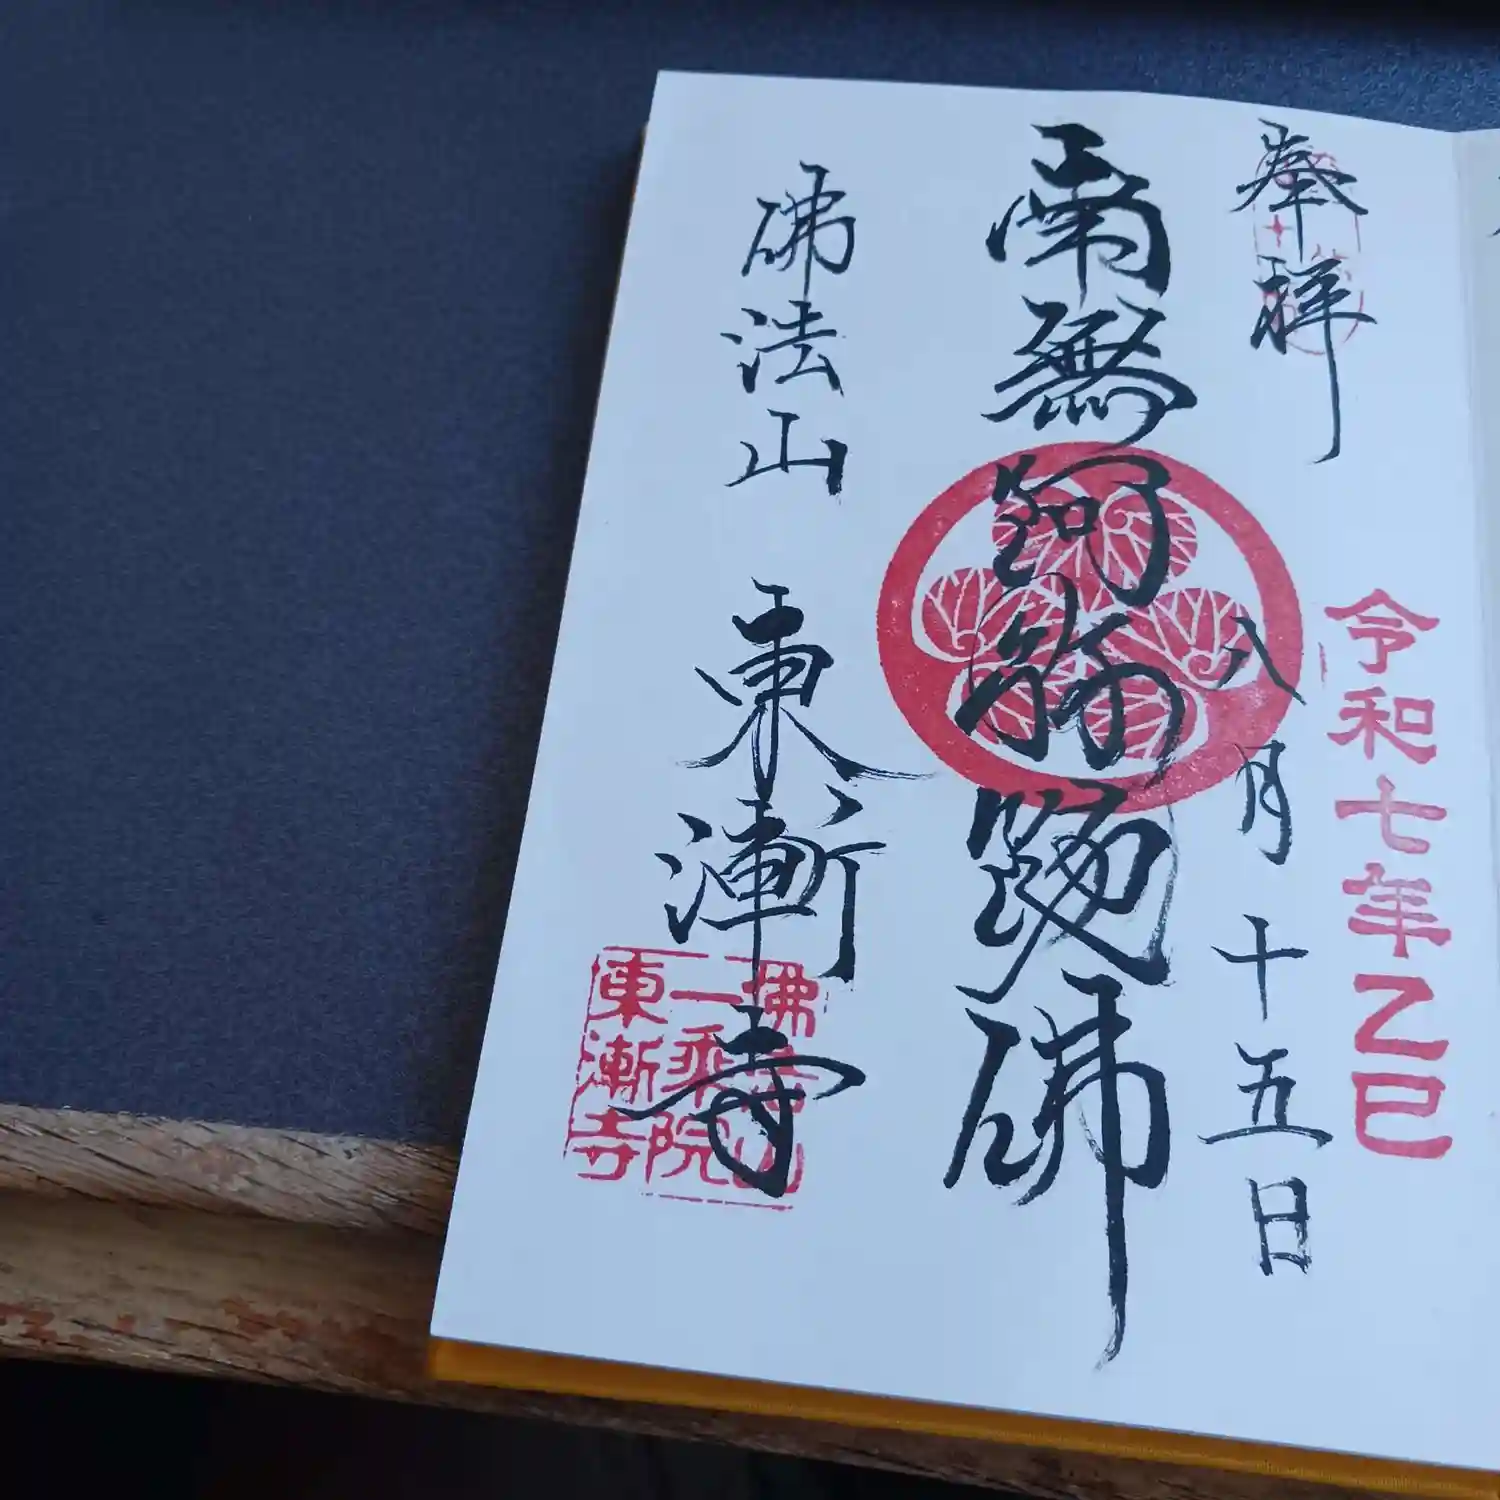 奉拝
令和七年乙巳
八月十五日
南無阿弥陀佛
佛法山
東漸寺
佛法山
一乘院
東漸寺